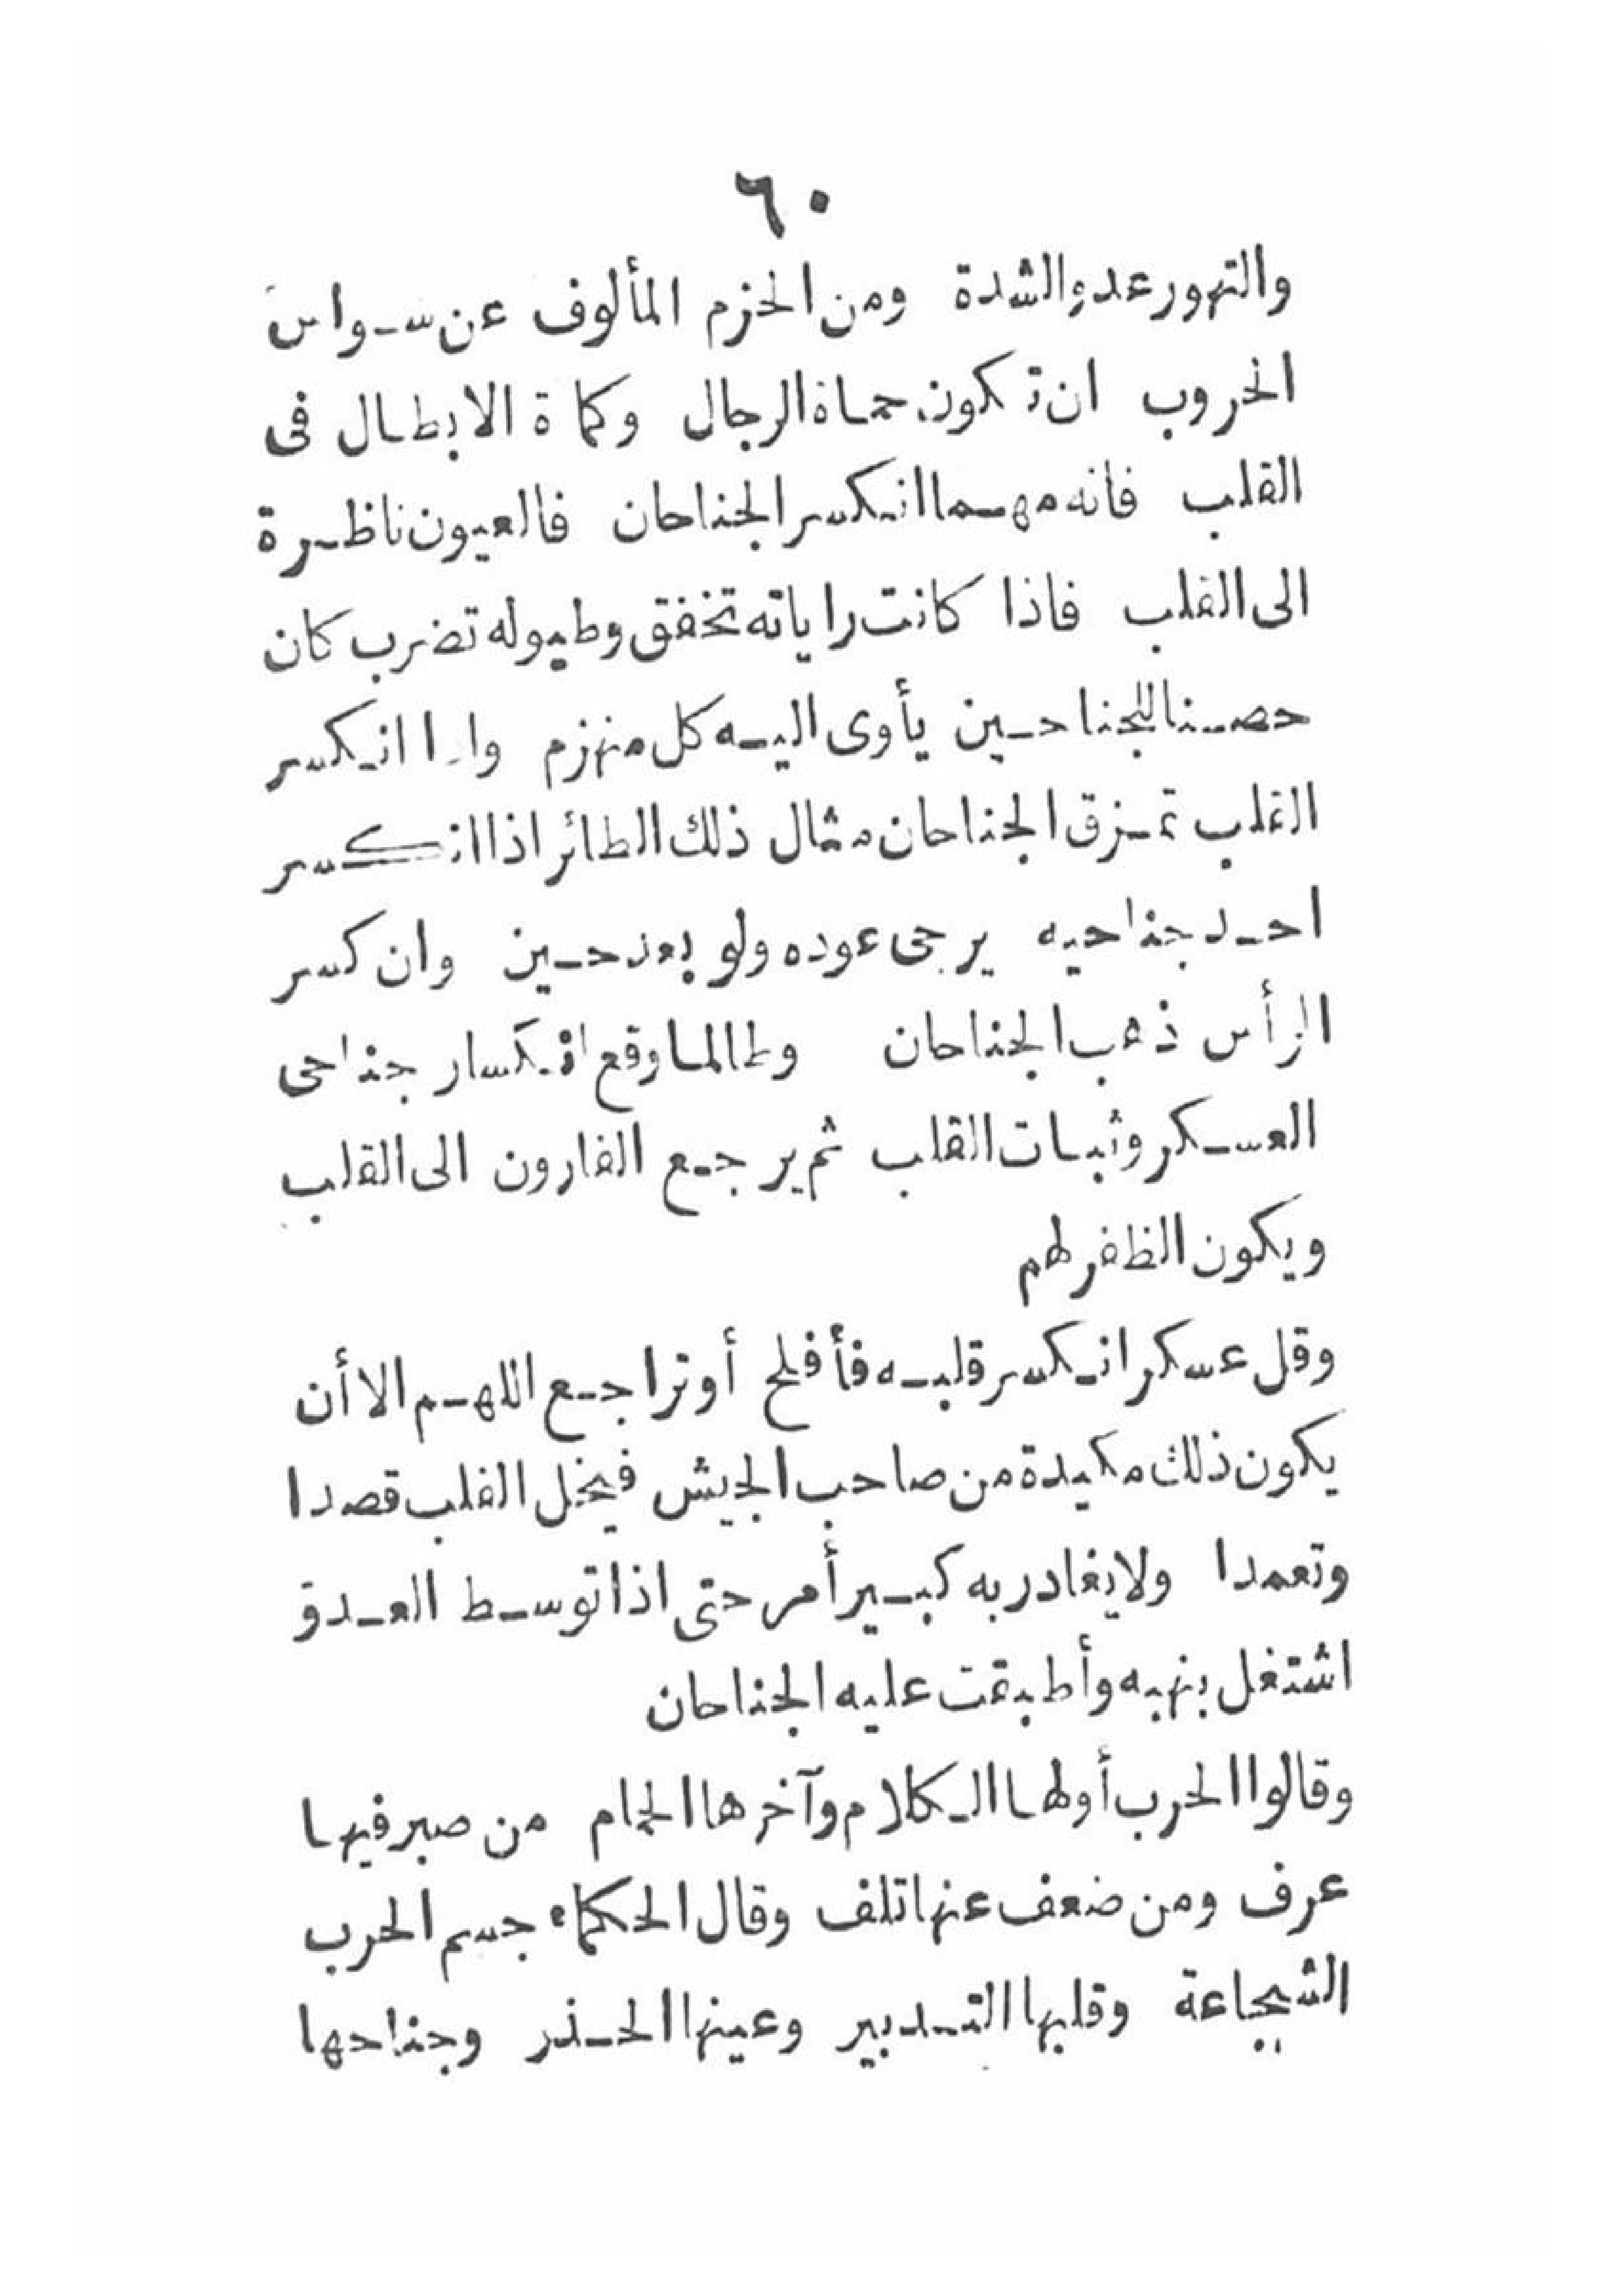 ٦٠
والتهور عدو الشدة ومن الحزم المألوف عن سواس
الحروب ان تكون حماة الرجال وكماة الابطال فى
القلب فانه مهما انكسر الجناحان فالعيون ناظرة
الى القلب فاذا كانت راياته تخفق وطبوله تضرب كان
حصنا للجناحين يأوى اليه كل منهزم واذا انكسر
القلب تمزق الجناحان مثال ذلك الطائر اذا انكسر
احد جناحيه يرجى عوده ولو بعد حين وان كسر
الرأس ذهب الجناحان وطالما وقع انكسار جناحى
العسكر وثبات القلب ثم يرجع الفارون الى القلب
ويكون الظفر لهم
وقل عسكر انكسر قلبه فأفلح أو تراجع اللهم الا أن
يكون ذلك مكيدة من صاحب الجيش فيخل القلب قصدا
وتعمدا ولا يغادر به كبير أمر حتى اذا توسط العدوّ
اشتغل بنهبه وأطبقت عليه الجناحان
وقالوا الحرب أولها الكلام وآخرها الحمام من صبر فيها
عرف ومن ضعف عنها تلف وقال الحكماء جسم الحرب
الشجاعة وقلبها التدبير وعينها الحذر وجناحها